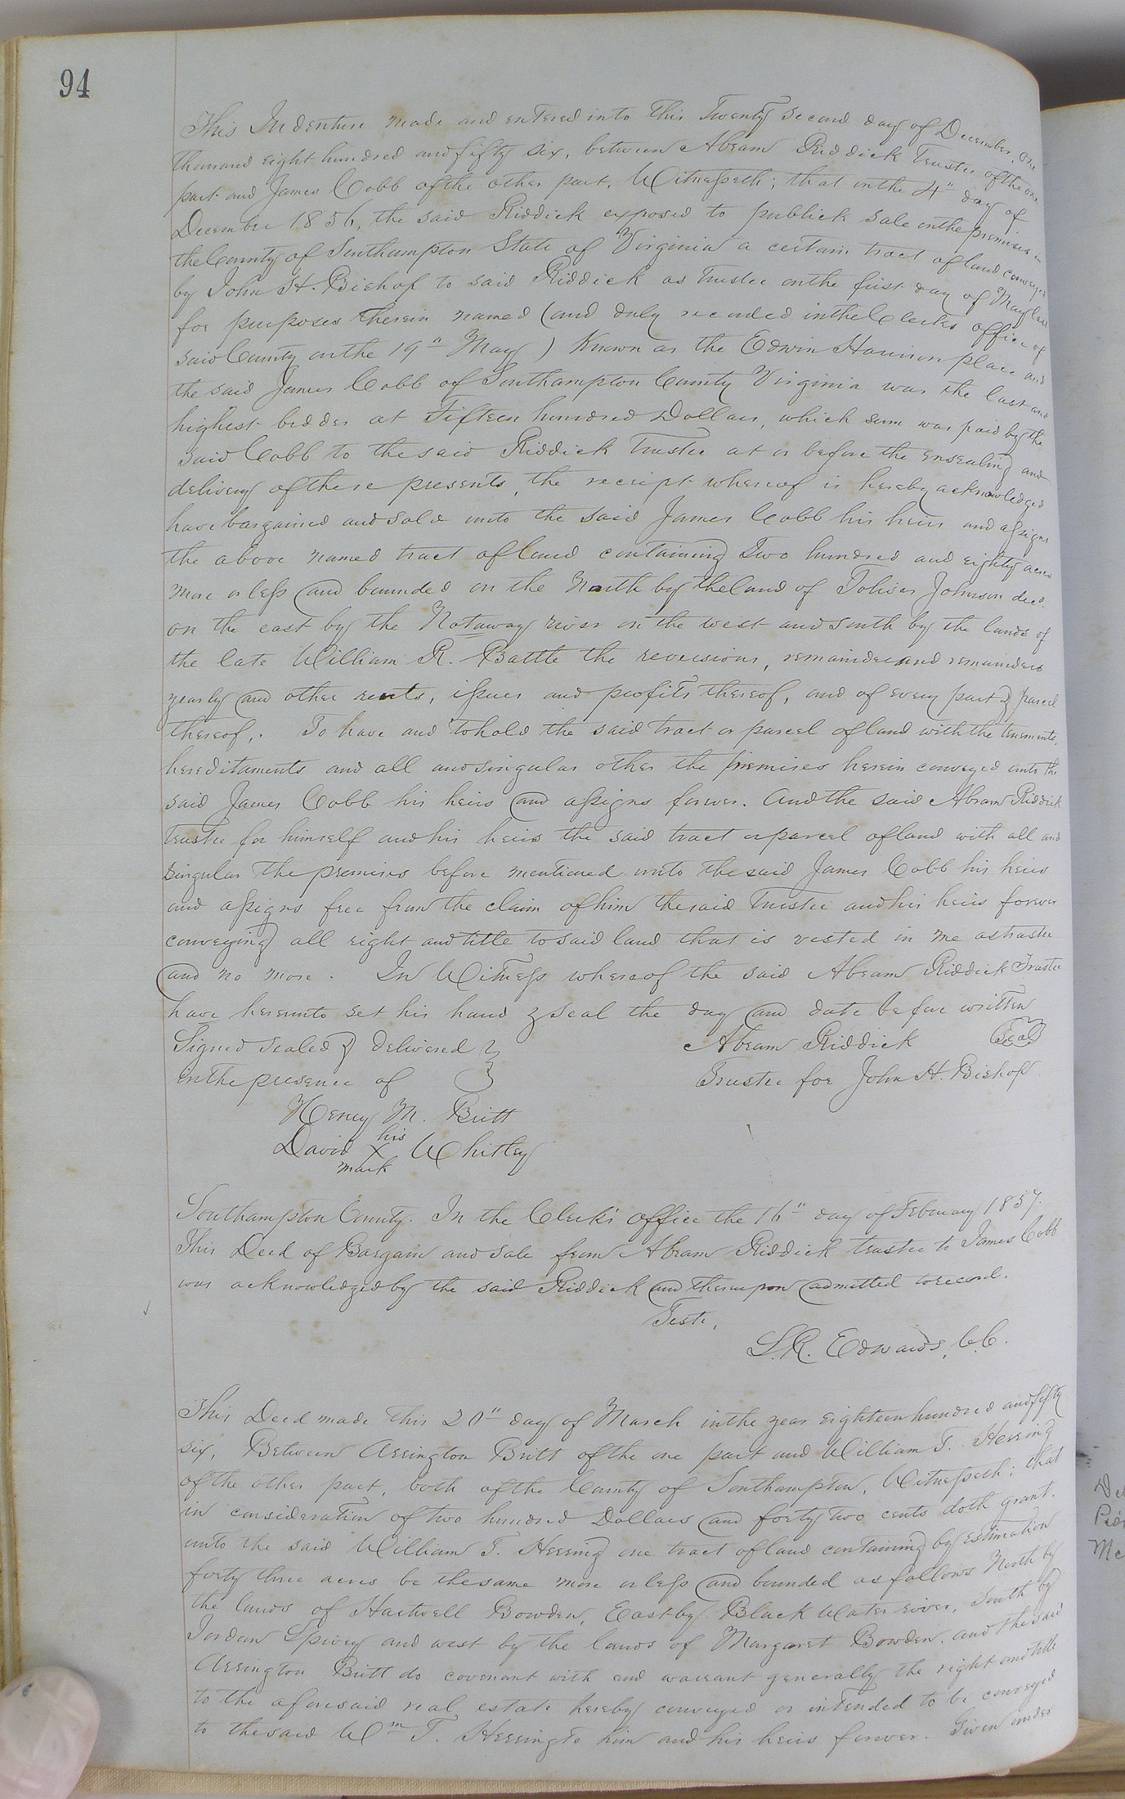 94
This Indenture made and entered into this Twenty Second day of December, one
thousand eight hundred and fifty six, between Abram Riddick Trustee of the one
part and James Cobb of the other part, Witnesseth; that on the 4" day of
December 1856, the said Riddick exposed to publick sale on the premises in
the County of Southampton State of Virginia a certain tract of land conveyed
by John H. Bishop to said Riddick as Trustee on the first day of May last
for purposes therein named (and duly recorded in the Clerks office of
said County on the 19" May) Known as the Edwin Harrison place and
the said James Cobb of Southampton County Virginia was the last and
highest bidder at Fifteen hundred Dollars, which sum was paid by the
said Cobb to the said Riddick Trustee at or before the ensealing and
delivery of these presents, the receipt whereof is hereby acknowledged
have bargained and sold unto the said James Cobb his heirs and assigns
the above named tract of land containing Two hundred and eighty acres
more or less and bounded on the North by the land of Toliver Johnson decd.
on the east by the Notaway river on the west and south by the lands of
the late William R. Battle the reversions, remainder and remainders
yearly and other rents, issues and profits thereof, and of every part & parcel
thereof,. To have and to hold the said tract or parcel of land with the tenements,
hereditaments and all and singular other the premises herein conveyed unto the
said James Cobb his heirs and assigns forever. And the said Abram Riddick
trustee for himself and his heirs the said tract or parcel of land with all and
singular the premises before mentioned unto the said James Cobb his heirs
and assigns free from the claim of him the said Trustee and his heirs forever
conveying all right and title to said land that is vested in me as trustee
and no more. In Witness whereof the said Abram Riddick Trustee
have hereunto set his hand & seal the day and date before written
Signed Sealed & delivered Abram Riddick Seal
in the presence of Trustee for John H. Bishop
Henry M. Britt
his
David X Whitley
mark
Southampton County. In the Clerk's office the 16" day of February 1857.
This Deed of Bargain and Sale from Abram Riddick trustee to James Cobb
was acknowledged by the said Riddick and thereupon admitted to record.
Teste,
L.R. Edwards, C.C.
This Deed made this 20" day of March in the year Eighteen hundred and fifty
six, Between Arrington Britt of the one part and William T. Herring
of the other part, both of the County of Southampton, Witnesseth; that
in consideration of two hundred Dollars and forty two cents doth grant
unto the said William T. Herring one tract of land containing by estimation
forty three acres be the same more or less and bounded as follows North by
the lands of Hartwell Bowden, East by Black Water river, South by
Jordan Spivey and west by the lands of Margaret Bowden. and the said
Arrington Britt do covenant with and warrant generally the right and title
to the aforesaid real estate hereby conveyed or intended to be conveyed
to the said Wm T. Herring to him and his heirs forever. Given under